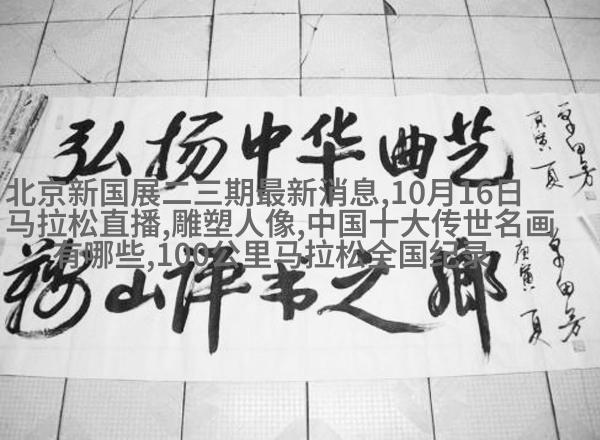 弘扬中华曲艺
庚寅 夏
单田芳
北京新国展二三期最新消息,10月16日
马拉松直播,雕塑人像,中国十大传世名画
有哪些,100公里马拉松全国纪录
鞍山评书之鄉
庚寅 夏
单田芳